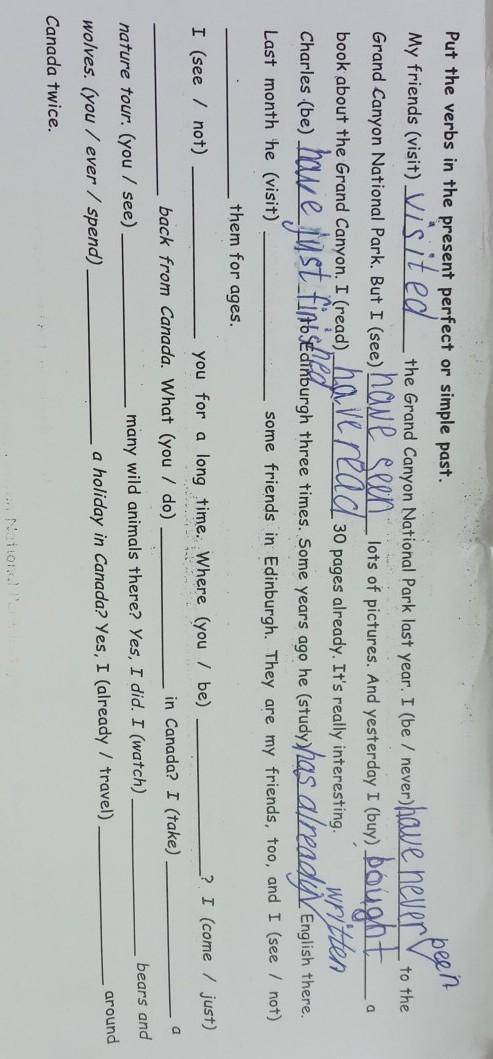 Put the verbs in the present perfect or simple past.
My friends (visit) visited the Grand Canyon National Park last year. I (be / never) have never been to the
Grand Canyon National Park. But I (see) have seen lots of pictures. And yesterday I (buy) bought a
book about the Grand Canyon. I (read) have read 30 pages already. It's really interesting.
Charles (be) have just finished to Edinburgh three times. Some years ago he (study) has already written English there.
Last month he (visit) ____ some friends in Edinburgh. They are my friends, too, and I (see / not)
____ them for ages.
I (see / not) ____ you for a long time. Where (you / be) ____? I (come / just)
____ back from Canada. What (you / do) ____ in Canada? I (take) ____ a
nature tour. (you / see) ____ many wild animals there? Yes, I did. I (watch) ____ bears and
wolves. (you / ever / spend) ____ a holiday in Canada? Yes, I (already / travel) ____ around
Canada twice.